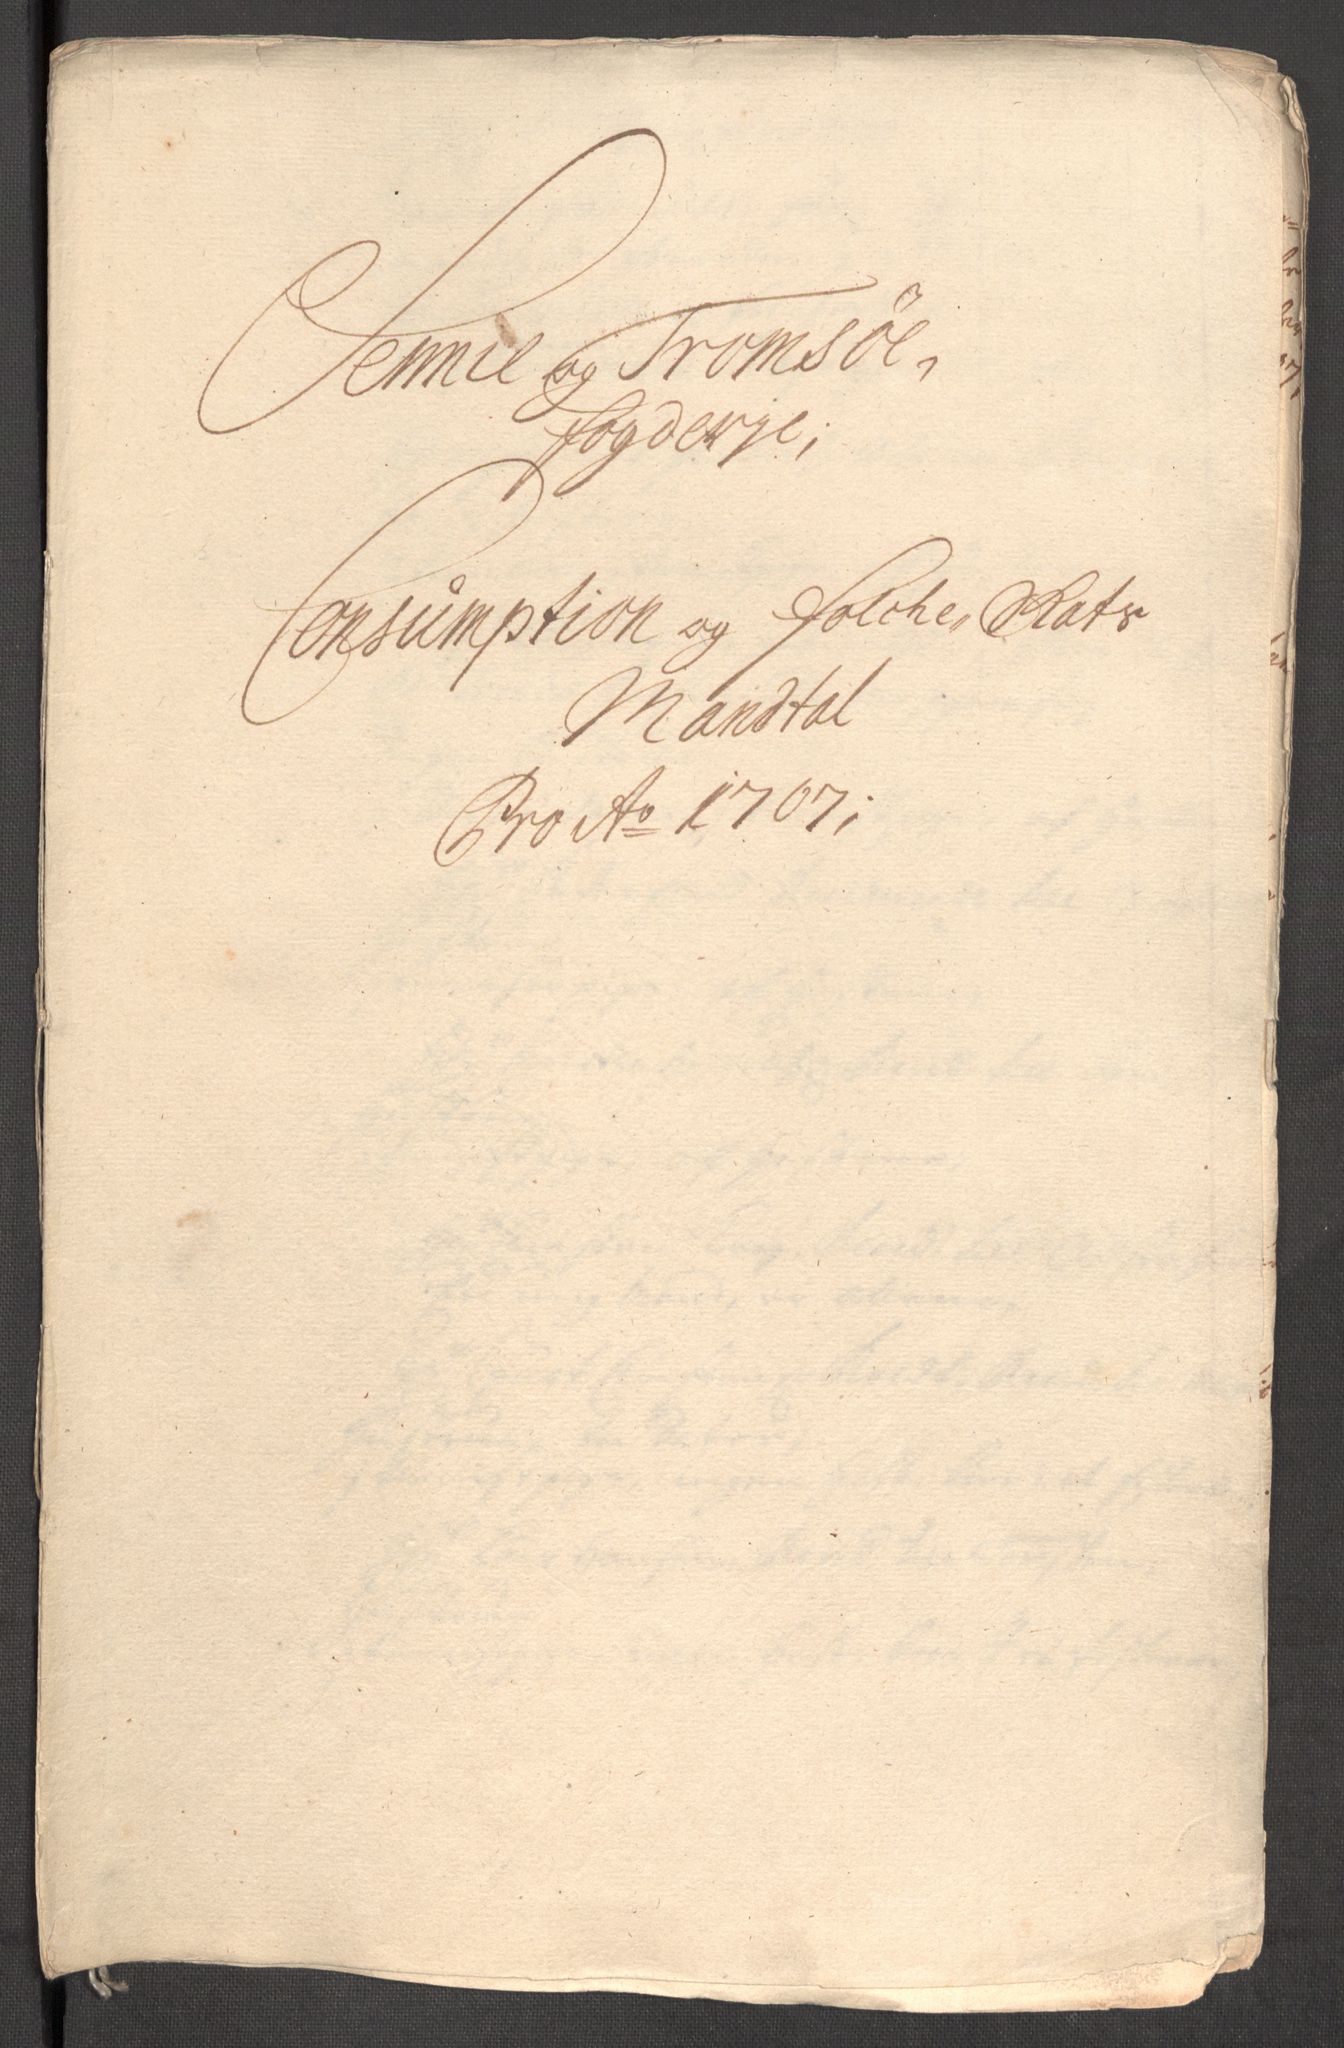 Sennie og Tromsöe,
fogderje;
Consumption og folche, Skats
Mandtal
Pro Ao 1707;